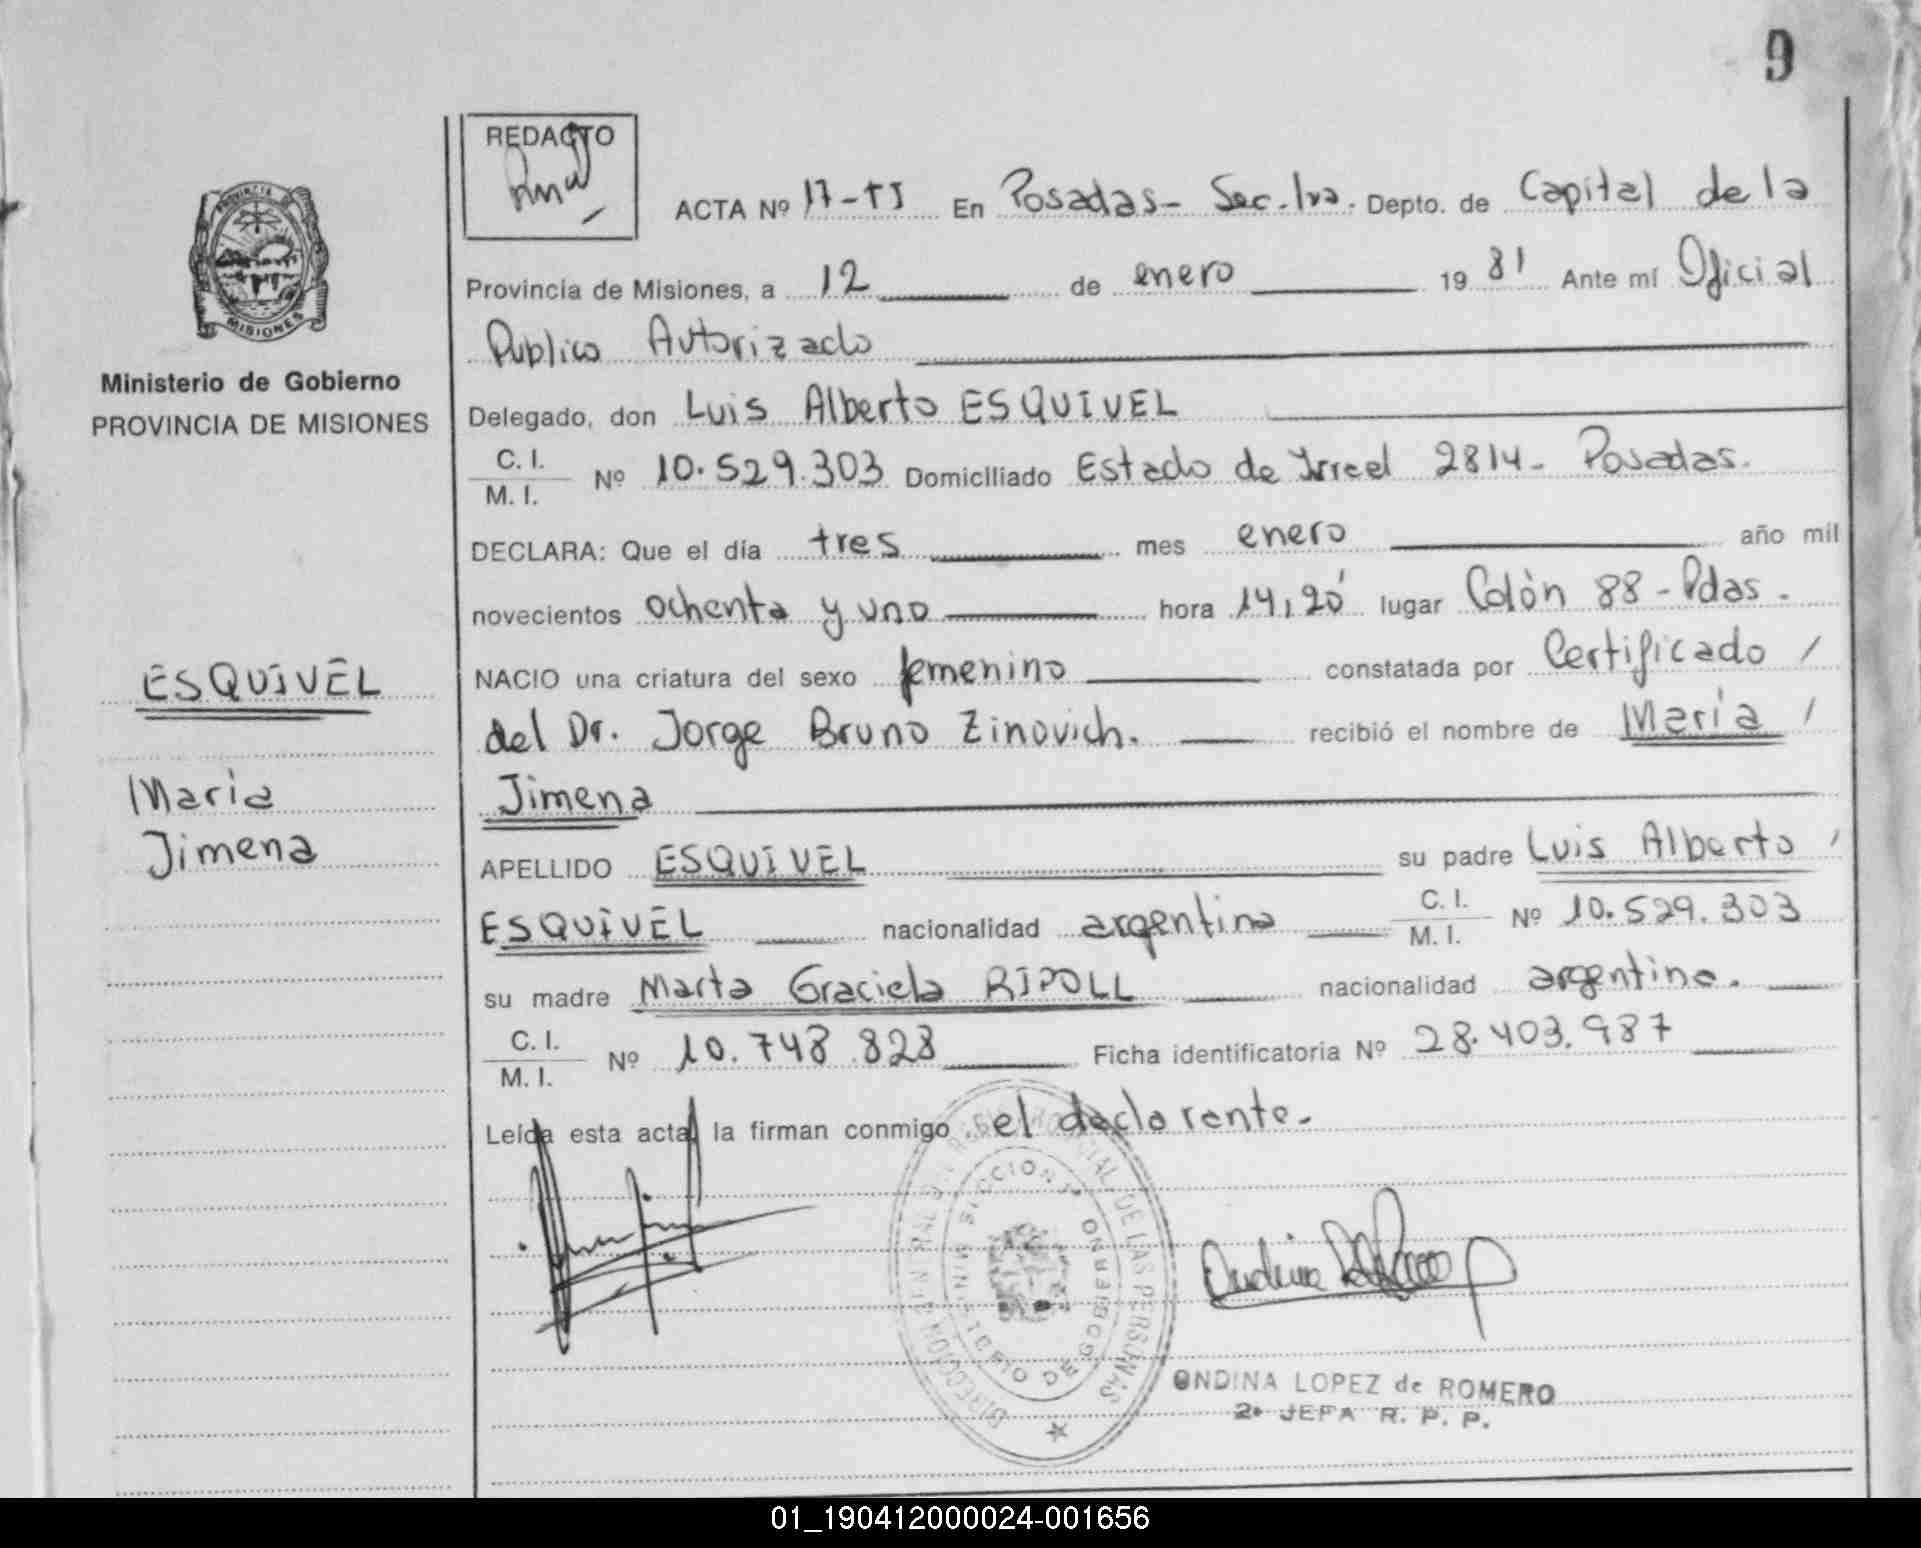 9
REDACTO
ACTA Nº 17-TI En Posadas- Sec. 1ra. Depto. de Capital de la
Provincia de Misiones, a 12 de enero 19 81 Ante mí Oficial
Publico Autorizado
Delegado, don Luis Alberto ESQUIVEL
C. I.
M. I. Nº 10.529.303 Domiciliado Estado de Isreel 2814- Posadas.
DECLARA: Que el día tres mes enero año mil
novecientos ochenta y uno hora 14,20 lugar Colón 88-Pdas.
NACIO una criatura del sexo femenino constatada por Certificado /
del Dr. Jorge Bruno Zinovich. recibió el nombre de María /
Jimena
APELLIDO ESQUIVEL su padre Luis Alberto /
ESQUIVEL nacionalidad argentina C. I.
M. I. Nº 10.529.303
su madre Marta Graciela RIPOLL nacionalidad argentina.
C. I.
M. I. Nº 10.748.828 Ficha identificatoria Nº 28.403.987
Leída esta acta, la firman conmigo el declarente.
PROVINCIA
MISIONES
Ministerio de Gobierno
PROVINCIA DE MISIONES
ESQUIVEL
María
Jimena
DE LAS PERSONAS
DIRECCION
MINISTERIO DE GOBIERNO
ONDINA LOPEZ de ROMERO
2ª JEFA R. P. P.
01_190412000024-001656